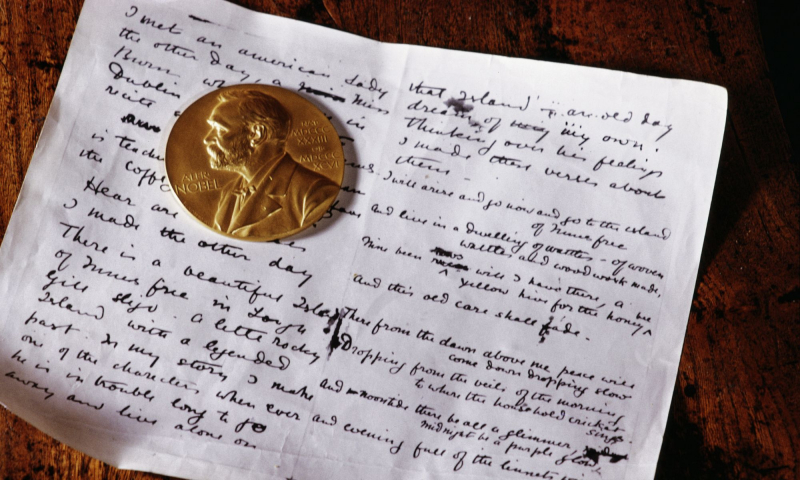 I met an american Lady
the other day, a Miss
Burn
Dublin
recite in
is teach
the coffe
Hear are
I made the other day
There is a beautiful Isla
of Innis free in Lough
Gill Sligo. A little rocky
Island with a legended
past. In my story I make
one of the characters when ever
he is in trouble long to go
away and live alone on
ALFR.
NOBEL
NAT.
MDCCC
XXXIII
OB.
MDCCC
XCVI
that Island - an old day
dream of my own.
Thinking over his feelings
I made these verses about
them -
I will arise and go now and go to the island
of Innis free
And live in a dwelling of wattles - of woven
wattles and wood work made.
Nine bean rows will I have there, a
yellow hive for the honey
And this old care shall fade.
There from the dawn above me peace will
come down dropping slow
Dropping from the veils of the morning
to where the household cricket
sings.
And noontide there be all a glimmer
midnight be a purple glow
and evening full of the linnets